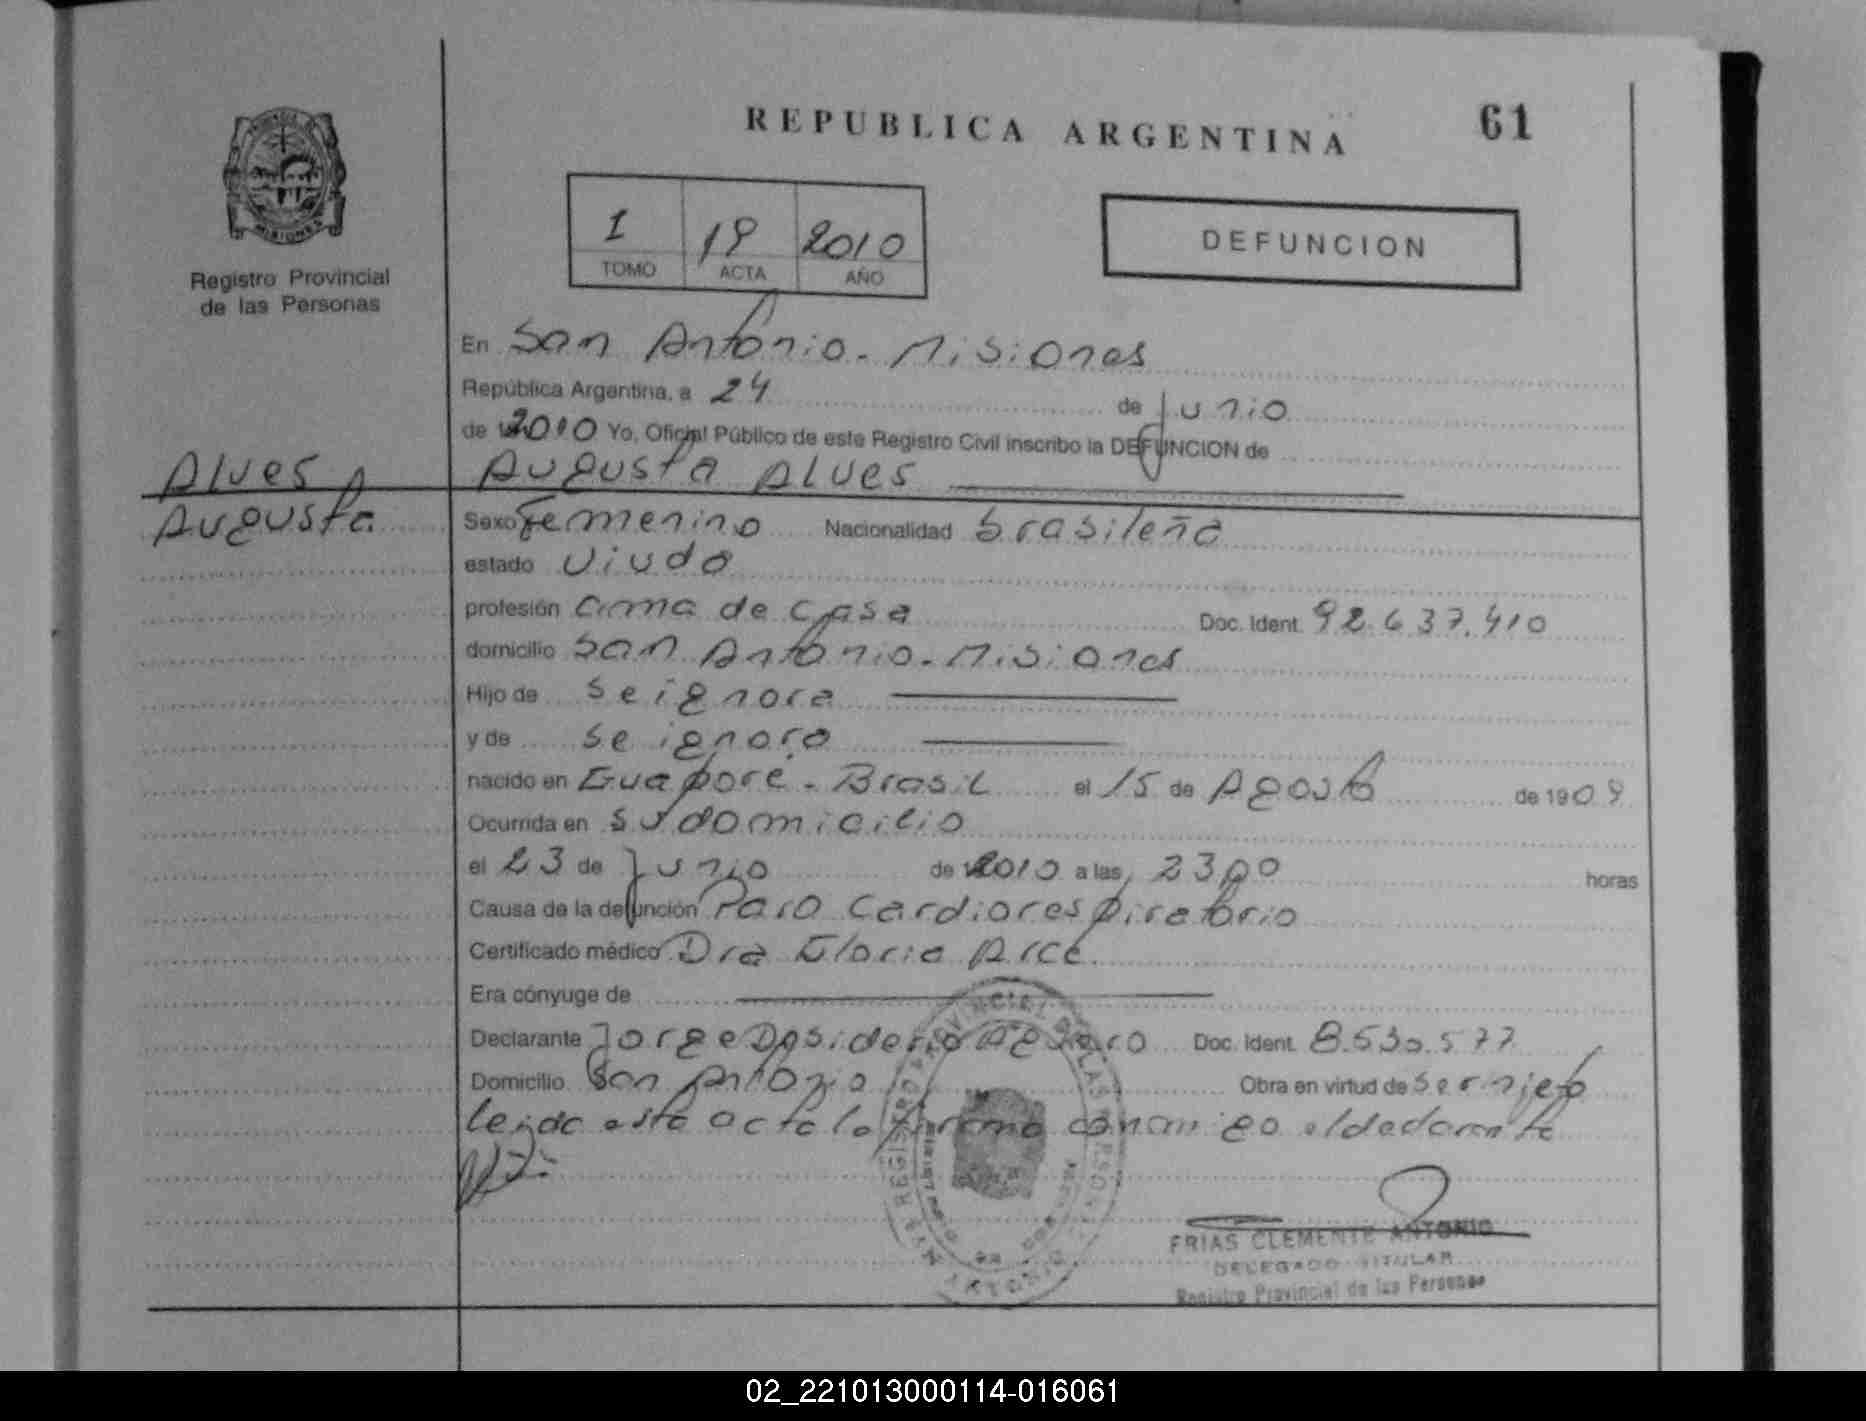 REPUBLICA ARGENTINA
61
MISIONES
Registro Provincial
de las Personas
I 19 2010
TOMO ACTA AÑO
DEFUNCION
En San Antonio - Misiones
República Argentina, a 24 de junio
de 2010 Yo, Oficial Público de este Registro Civil inscribo la DEFUNCION de
Alves
Augusta Alves
Augusta
Sexo Femenino Nacionalidad brasileña
estado Viuda
profesión ama de casa Doc. Ident. 92.637.410
domicilio San Antonio - Misiones
Hijo de se ignora
y de se ignora
nacido en Guaporé - Brasil el 15 de Agosto de 1909
Ocurrida en su domicilio
el 23 de junio de 2010 a las 23,00 horas
Causa de la defunción Paro Cardiorespiratorio
Certificado médico Dra Gloria Arce
Era cónyuge de
Declarante Jorge Desiderio Aguero Doc. Ident. 8.530.577
Domicilio San Antonio Obra en virtud de ser nieto
leida esta acta la firma conmigo el declarante
FRIAS CLEMENTE ANTONIO
DELEGADO TITULAR
Registro Provincial de las Personas
02_221013000114-016061